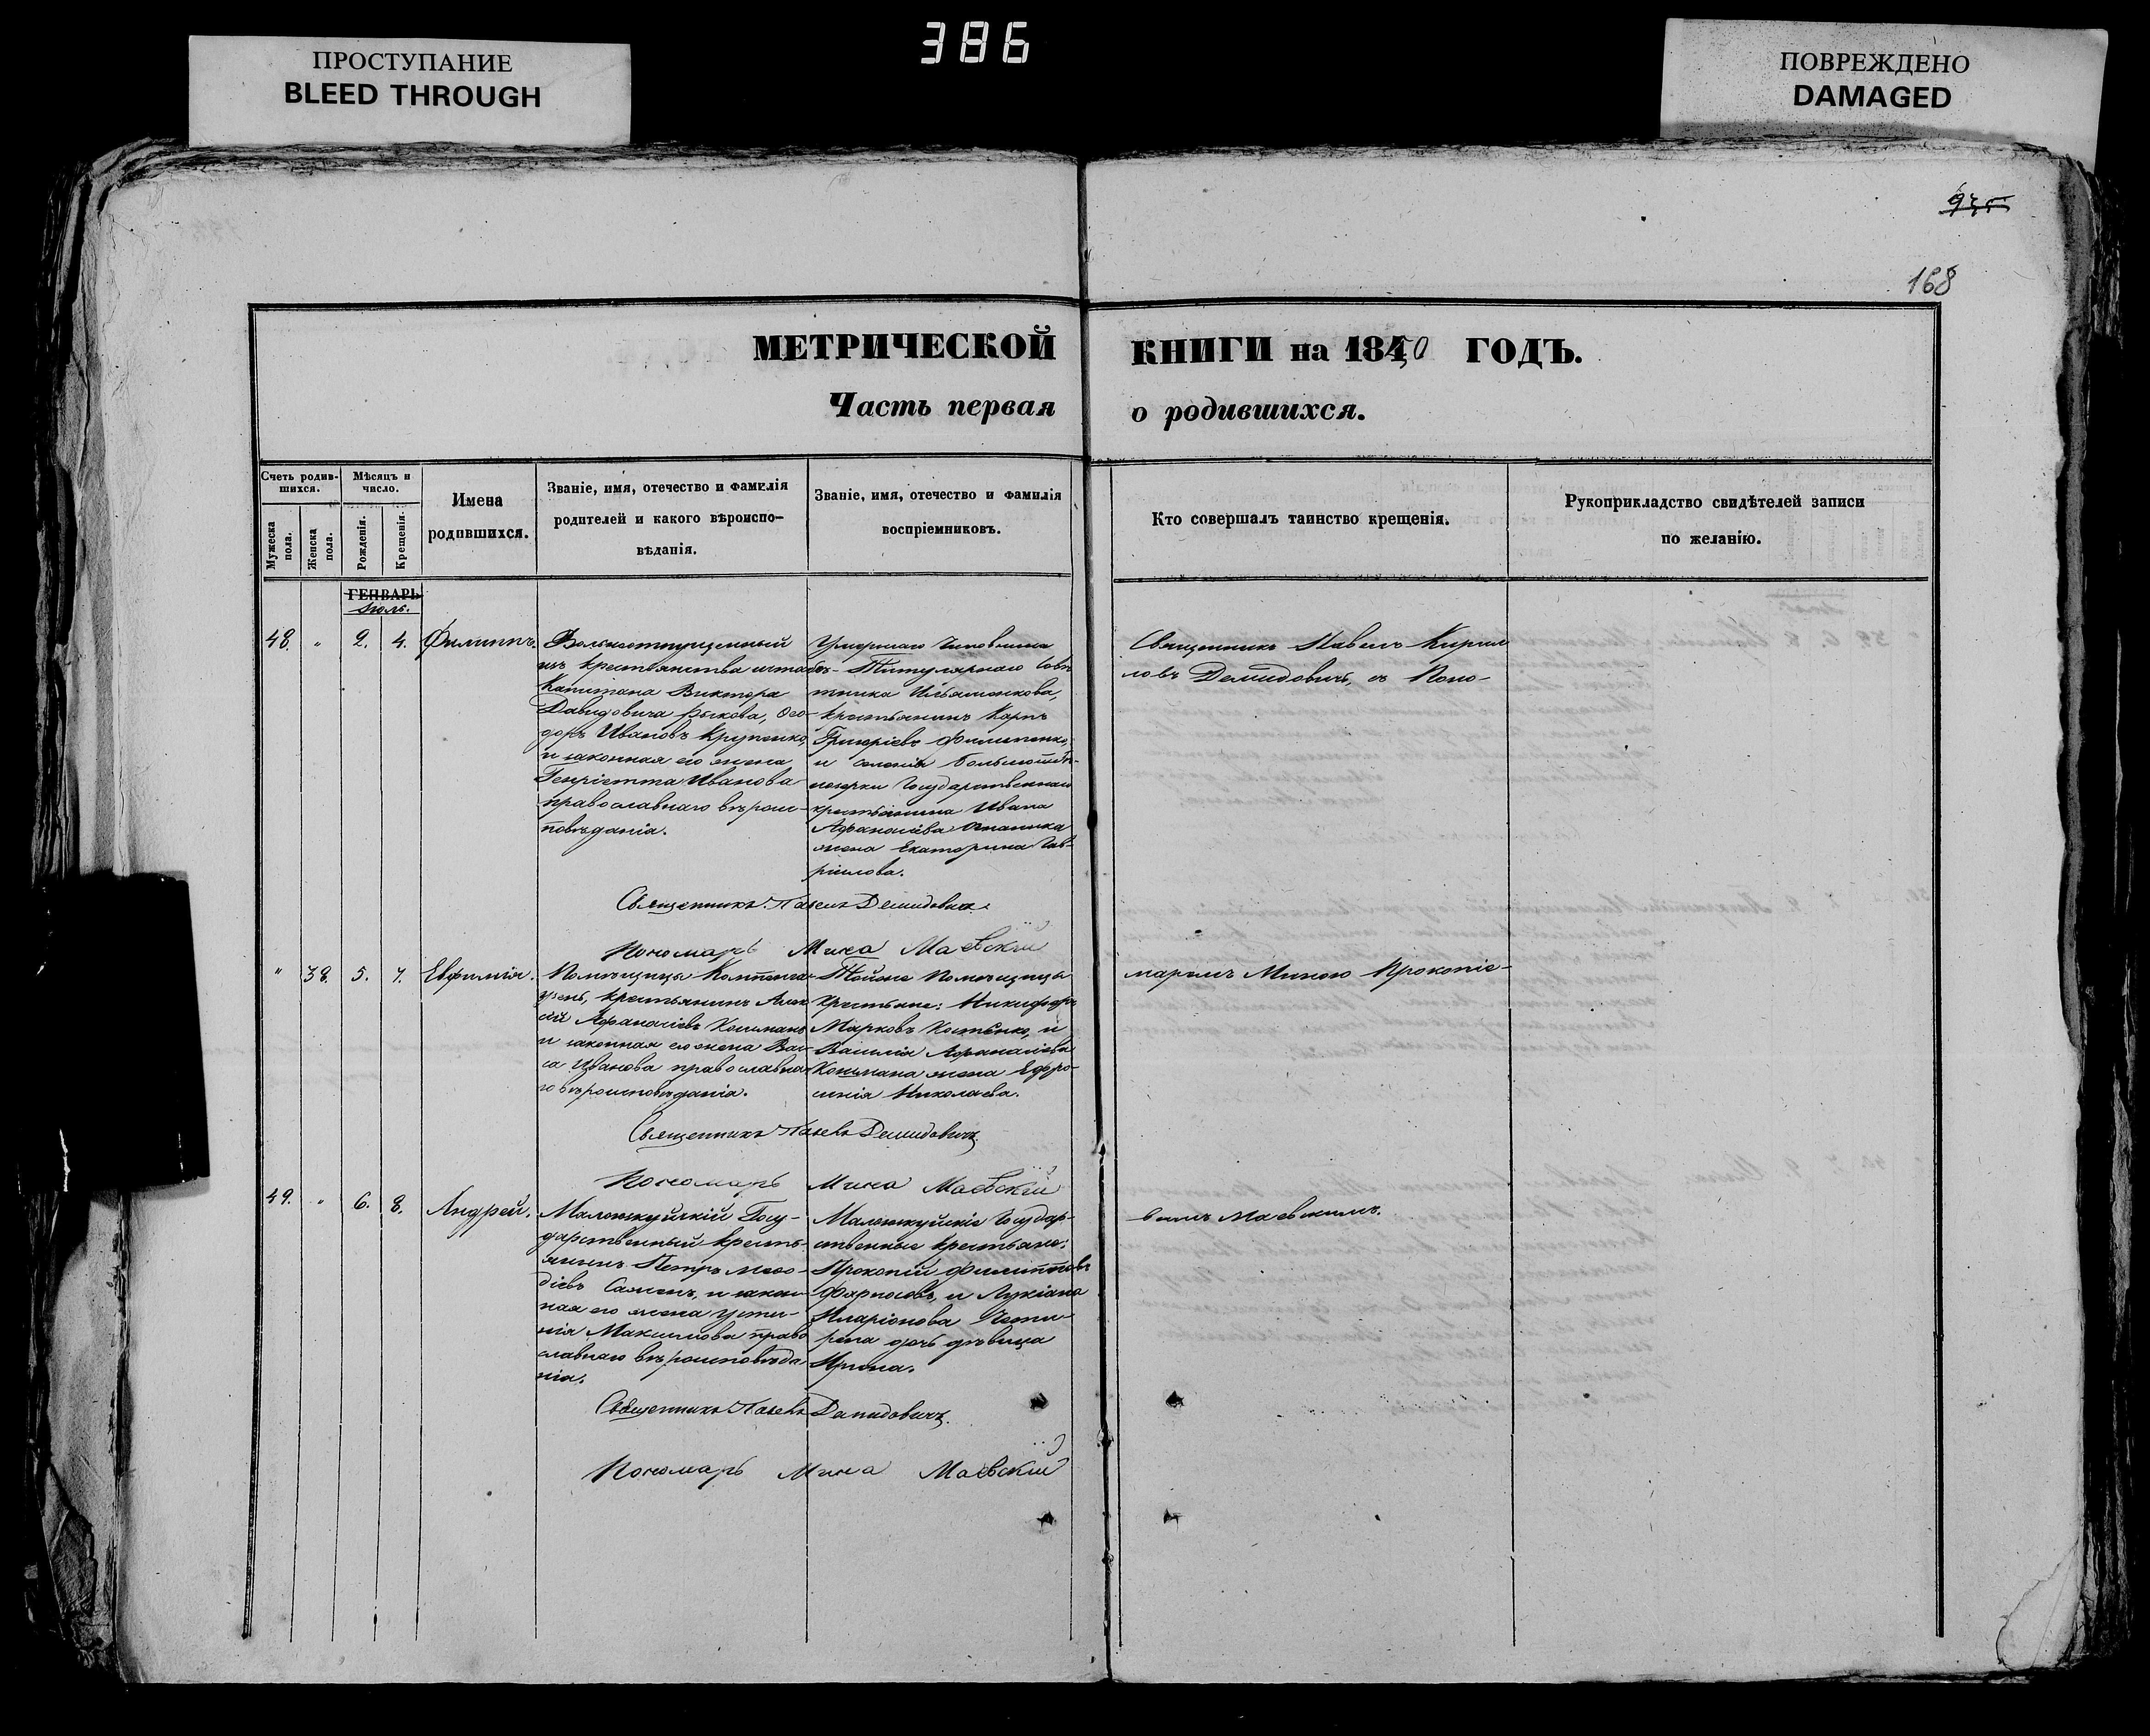 386
ПРОСТУПАНИЕ
BLEED THROUGH
ПОВРЕЖДЕНО
DAMAGED
935
168
МЕТРИЧЕСКОЙ КНИГИ на 1850 ГОДЪ.
Часть первая о родившихся.
Счетъ родив-
шихся.
Мужеска
пола.
Женска
пола.
Мѣсяцъ и
число.
Рожденія.
Крещенія.
Имена
родившихся.
Званіе, имя, отечество и фамилія
родителей и какого вѣроиспо-
вѣданія.
Званіе, имя, отечество и фамилія
воспріемниковъ.
Кто совершалъ таинство крещенія.
Рукоприкладство свидѣтелей записи
по желанію.
ГЕНВАРЬ
Іюль.
48. " 2. 4. Филиппъ.
Вольноотпущенный
изъ крестьянства штабсъ-
Капитана Виктора
Давидовича Рыкова, Ѳео-
доръ Ивановъ Крупенко,
и законная его жена
Генріетта Иванова
православнаго вѣроис-
повѣданія.
Умершаго Чиновника
Титулярнаго Совѣ-
тника Ильяшенкова,
крестьянинъ Карпъ
Григоріевъ Филипенко,
и селенія
Государственнаго
крестьянина Ивана
Афанасіева
жена Екатерина Гав-
ріилова.
Священникъ Павелъ Кирил
ловъ Демидовичъ, съ Поно-
Священникъ Павелъ Демидовичъ.
Пономарь Мина Маевскій
" 38. 5. 7. Евфимія.
Помѣщицы
крестьянинъ Алек
сѣй Афанасіевъ Кошманъ
и законная его жена Вас-
са Иванова православна
го вѣроисповѣданія.
Тойже Помѣщицы
крестьяне: Никифоръ
Марковъ Костенко, и
Василія Афанасіева
Кошмана жена Ефро-
синія Николаева.
маремъ Миною Прокопіе-
Священникъ Павелъ Демидовичъ
Пономарь Мина Маевскій
49. " 6. 8. Андрей.
Малоянкуйскій Госу-
дарственный кресть-
янинъ Петръ Меѳо-
діевъ и закон-
ная его жена Усти-
нія Максимова право
славнаго вѣроисповѣда-
нія.
Малоянкуйскіе Государ-
ственные крестьяне:
Прокопій Филипповъ
и Лукіана
Иларіонова
дочь дѣвица
Ирина.
вымъ Маевскимъ.
Священникъ Павелъ Демидовичъ.
Пономарь Мина Маевскій